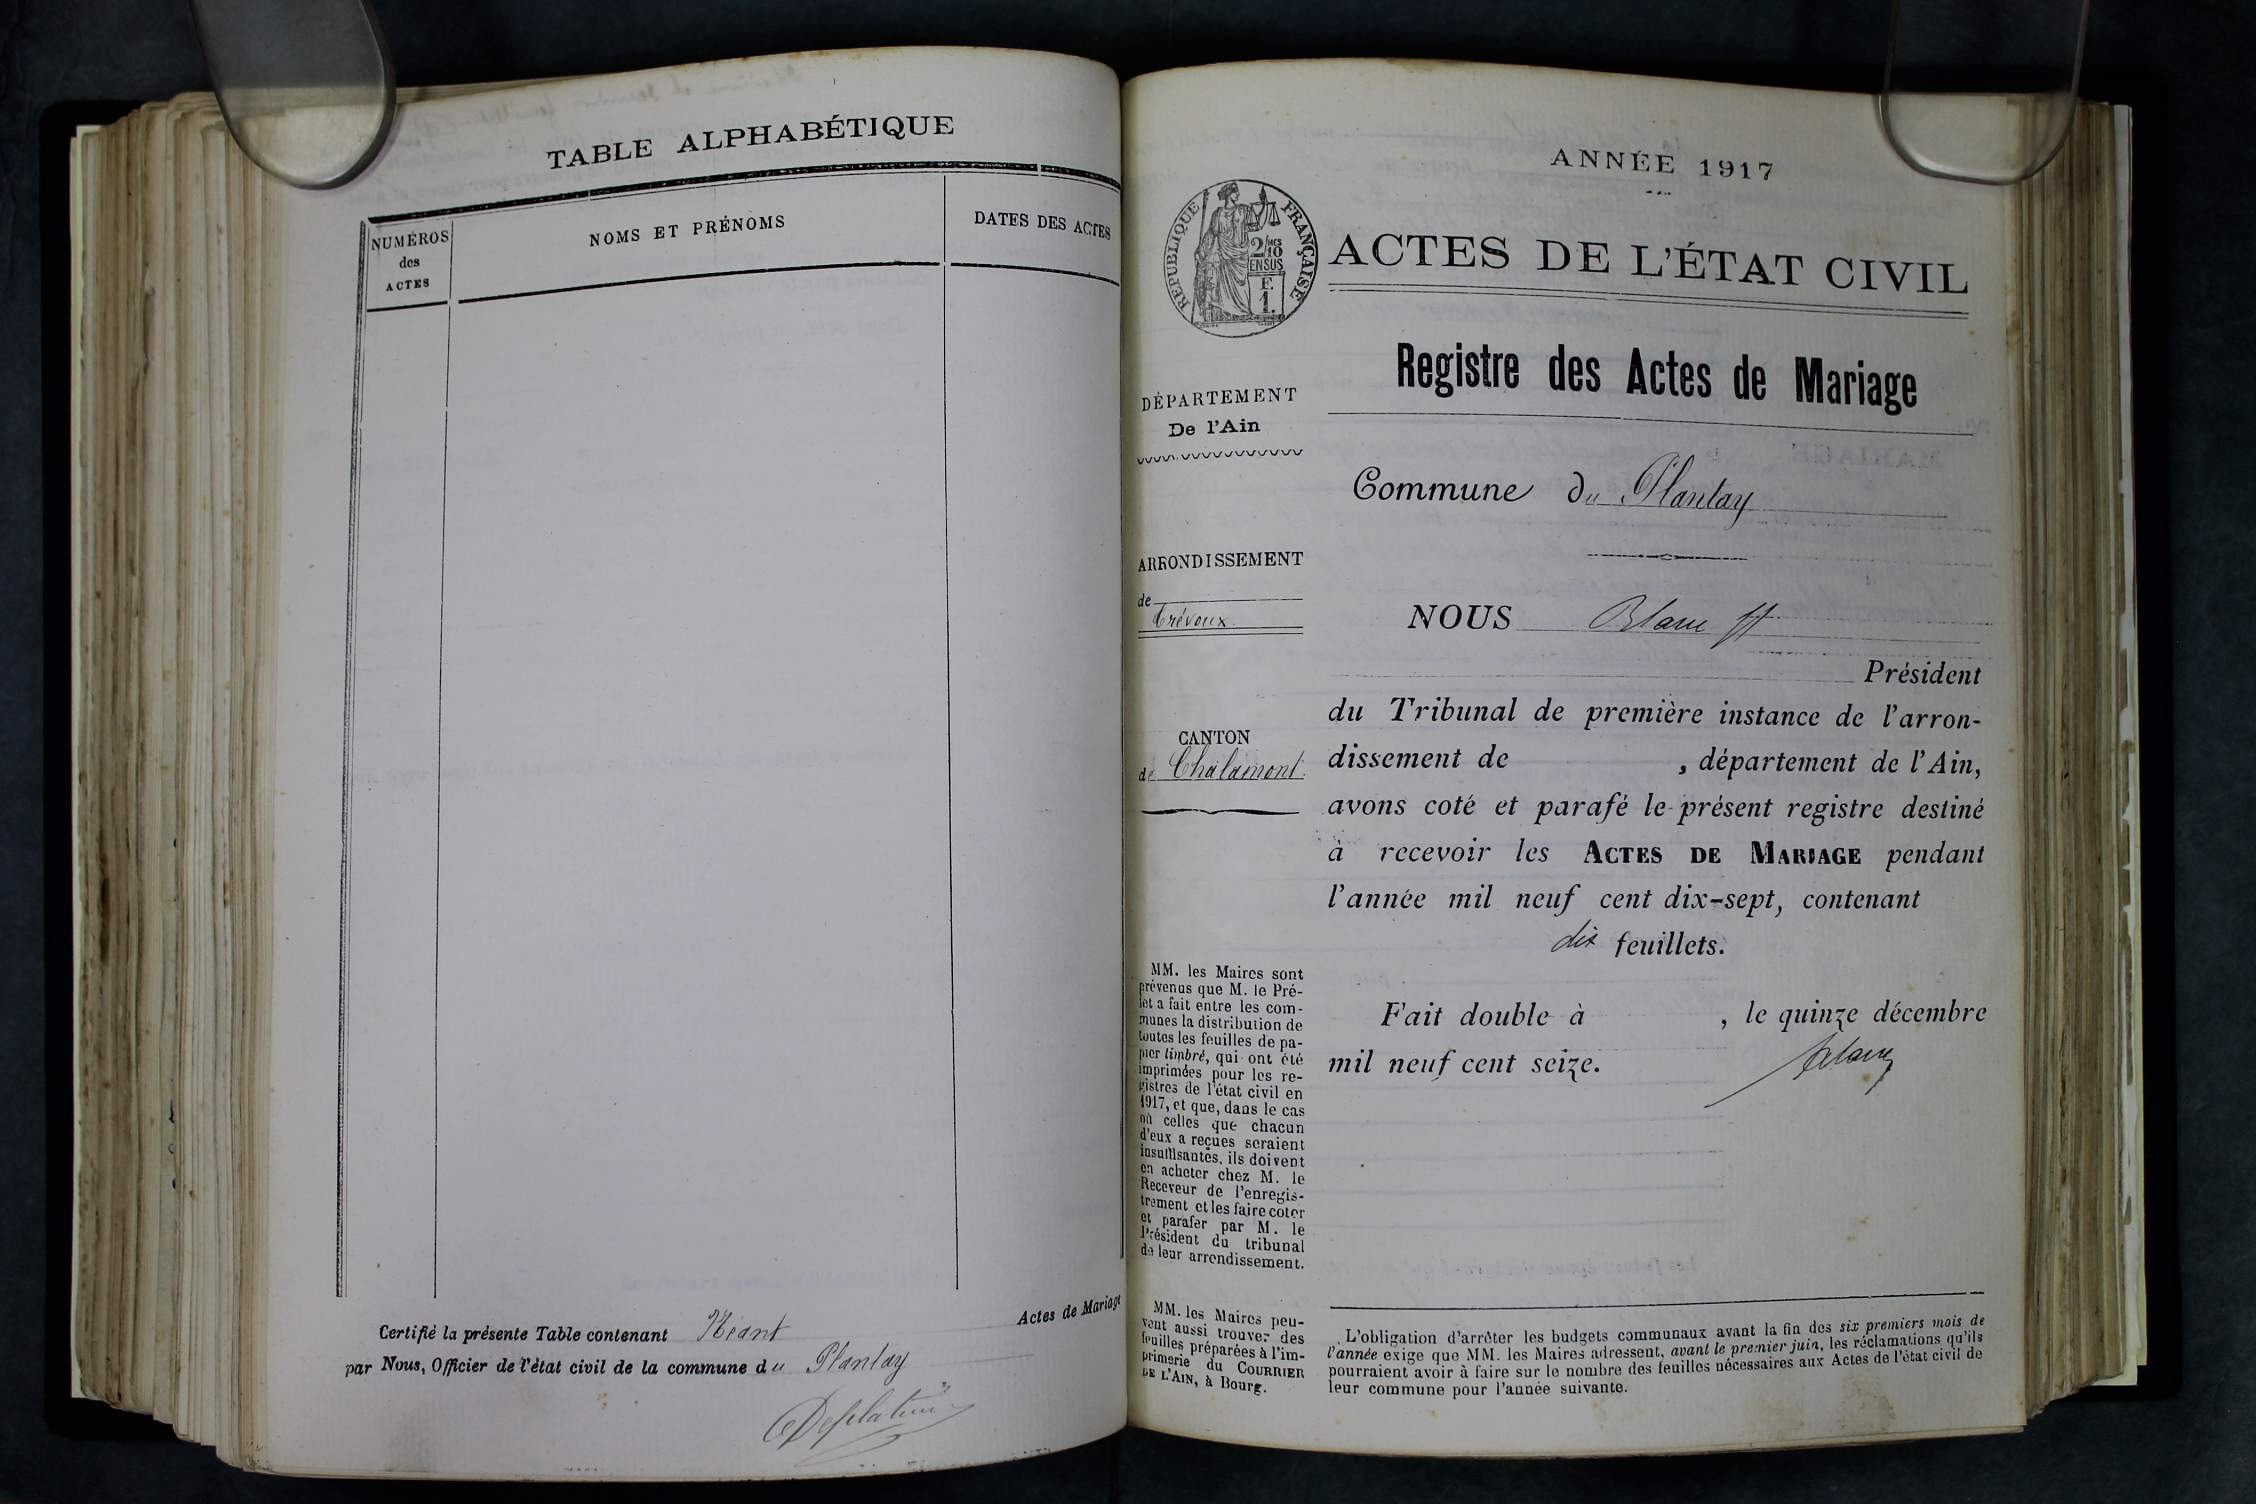 TABLE ALPHABÉTIQUE
NUMÉROS
des
ACTES
NOMS ET PRÉNOMS
DATES DES ACTES
Certifié la présente Table contenant Néant Actes de Mariage
par Nous, Officier de l'état civil de la commune du Plantay
ANNÉE 1917
RÉPUBLIQUE FRANÇAISE
2/10
EN SUS
F.
1.
ACTES DE L'ÉTAT CIVIL
Registre des Actes de Mariage
DÉPARTEMENT
De l'Ain
Commune du Plantay
ARRONDISSEMENT
de
Trévoux
CANTON
de Chalamont
NOUS Blanc
Président
du Tribunal de première instance de l'arron-
dissement de , département de l'Ain,
avons coté et parafé le présent registre destiné
à recevoir les ACTES DE MARIAGE pendant
l'année mil neuf cent dix-sept, contenant
dix feuillets.
Fait double à , le quinze décembre
mil neuf cent seize.
Blanc
MM. les Maires sont
prévenus que M. le Pré-
fet a fait entre les com-
munes la distribution de
toutes les feuilles de pa-
pier timbré, qui ont été
imprimées pour les re-
gistres de l'état civil en
1917, et que, dans le cas
où celles que chacun
d'eux a reçues seraient
insuffisantes, ils doivent
en acheter chez M. le
Receveur de l'enregis-
trement et les faire coter
et parafer par M. le
Président du tribunal
de leur arrondissement.
MM. les Maires peu-
vent aussi trouver des
feuilles préparées à l'im-
primerie du COURRIER
DE L'AIN, à Bourg.
L'obligation d'arrêter les budgets communaux avant la fin des six premiers mois de
l'année exige que MM. les Maires adressent, avant le premier juin, les réclamations qu'ils
pourraient avoir à faire sur le nombre des feuilles nécessaires aux Actes de l'état civil de
leur commune pour l'année suivante.